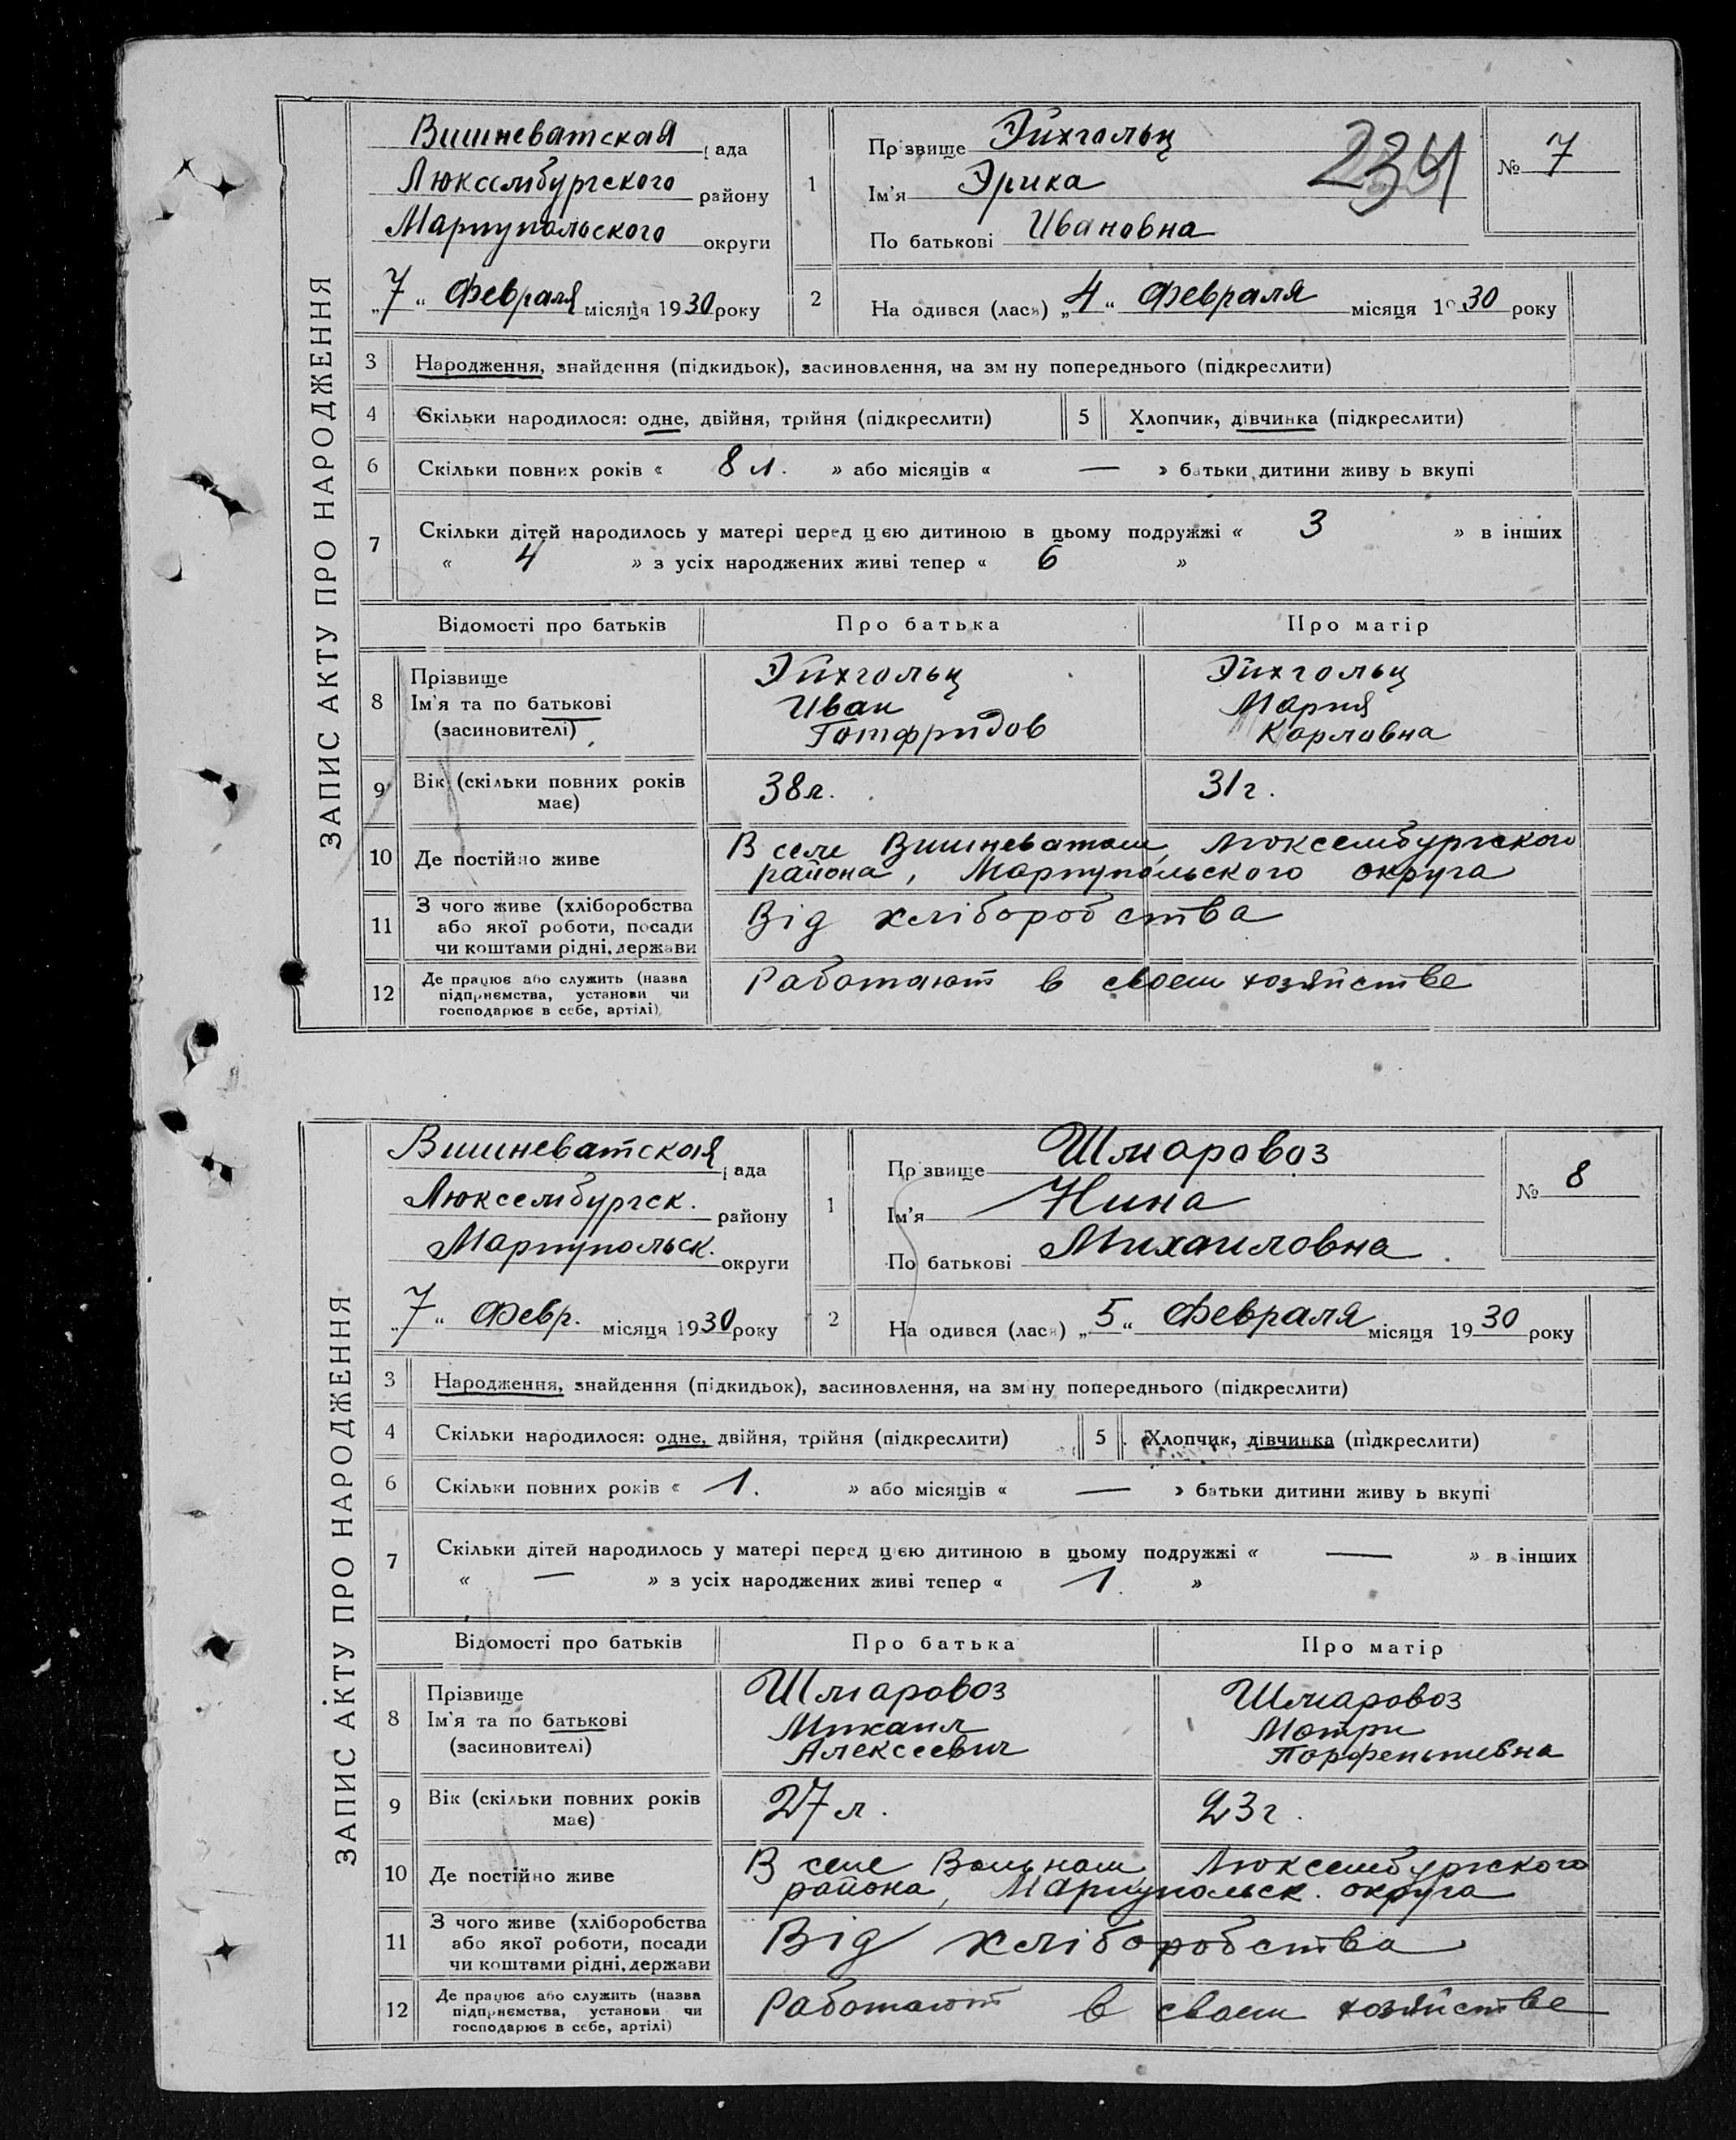 ЗАПИС АКТУ ПРО НАРОДЖЕННЯ
Вишневатская рада
Люксембургского району
Мариупольского округи
„7“ Февраля місяця 1930 року
1
Прізвище Эйхгольц
Ім'я Эрика
По батькові Ивановна
234
№ 7
2
Народився (лася) „4“ Февраля місяця 1930 року
3 Народження, знайдення (підкидьок), засиновлення, на зміну попереднього (підкреслити)
4 Скільки народилося: одне, двійня, трійня (підкреслити) 5 Хлопчик, дівчинка (підкреслити)
6 Скільки повних років « 8 л. » або місяців « — » батьки дитини живуть вкупі
7 Скільки дітей народилось у матері перед цією дитиною в цьому подружжі « 3 » в інших
« 4 » з усіх народжених живі тепер « 6 »
Відомості про батьків Про батька Про матір
8 Прізвище
Ім'я та по батькові
(засиновителі)
Эйхгольц
Иван
Готфридов
Эйхгольц
Мария
Карловна
9 Вік (скільки повних років
має)
38 л.
31 г.
10 Де постійно живе
В селе Вишневатом, Люксембургского
района, Мариупольского округа
11 З чого живе (хліборобства
або якої роботи, посади
чи коштами рідні, держави
Від хліборобства
12 Де працює або служить (назва
підприємства, установи чи
господарює в себе, артілі)
Работают в своем хозяйстве
ЗАПИС АКТУ ПРО НАРОДЖЕННЯ
Вишневатская рада
Люксембургск. району
Мариупольск. округи
„7“ Февр. місяця 1930 року
1
Прізвище Шмаровоз
Ім'я Нина
По батькові Михаиловна
№ 8
2
Народився (лася) „5“ Февраля місяця 1930 року
3 Народження, знайдення (підкидьок), засиновлення, на зміну попереднього (підкреслити)
4 Скільки народилося: одне, двійня, трійня (підкреслити) 5 Хлопчик, дівчинка (підкреслити)
6 Скільки повних років « 1. » або місяців « — » батьки дитини живуть вкупі
7 Скільки дітей народилось у матері перед цією дитиною в цьому подружжі « — » в інших
« — » з усіх народжених живі тепер « 1 »
Відомості про батьків Про батька Про матір
8 Прізвище
Ім'я та по батькові
(засиновителі)
Шмаровоз
Михаил
Алексеевич
Шмаровоз
Мотри
Парфентиевна
9 Вік (скільки повних років
має)
27 л.
23 г.
10 Де постійно живе
В селе Вольном Люксембургского
района, Мариупольск. округа
11 З чого живе (хліборобства
або якої роботи, посади
чи коштами рідні, держави
Від хліборобства
12 Де працює або служить (назва
підприємства, установи чи
господарює в себе, артілі)
Работают в своем хозяйстве